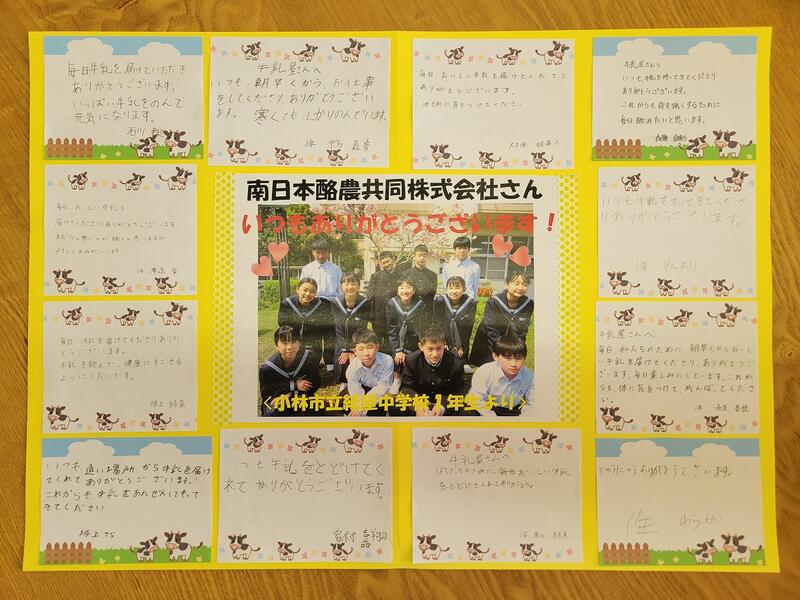 毎日牛乳を届けていただき
ありがとうございます。
いっぱい牛乳をのんで
元気になります。
石川
牛乳屋さんへ
いつも朝早くから、お仕事
をしてくださり、ありがとうござい
ます。寒くても、しっかりのんでいます。
1年
毎日、おいしい牛乳を届けてくださり
ありがとうございます。
体調に気をつけてください
牛乳屋さんへ
いつも牛乳を持ってきてくださり
ありがとうございます。
これからも骨を強くするために
毎日飲みたいと思います。
南日本酪農共同株式会社さん
いつもありがとうございます！
<小林市立紙屋中学校1年生より>
毎日、おいしい牛乳を
届けてくださりありがとうございます。
まだ少し寒い日が続くと思いますが
よろしくおねがいします。
1年
いつも牛乳をもってきてくださ
りありがとうございます。
1年
毎日牛乳を届けてくださりありが
とうございます。
牛乳を飲んで、健康にすごせる
ようにしたいです。
坂上
牛乳屋さんへ
毎日、私たちのために、朝早くからおいし
い牛乳を届けてくださり、ありがとうござい
ます。毎日楽しみにしています。これか
らも、体に気をつけて、がんばってくださ
い。
1年
いつも遠い場所から牛乳を届け
てくれてありがとうございます。
これからも牛乳をあんぜんにもって
きてください
坂上さら
いつも牛乳をとどけてく
れてありがとうございます。
牛乳屋さんへ
わたしたちのために毎日おいしい牛乳
をとどけてくれてありがとう。
1年
ぎゅうにゅうありがとうございます。
1年